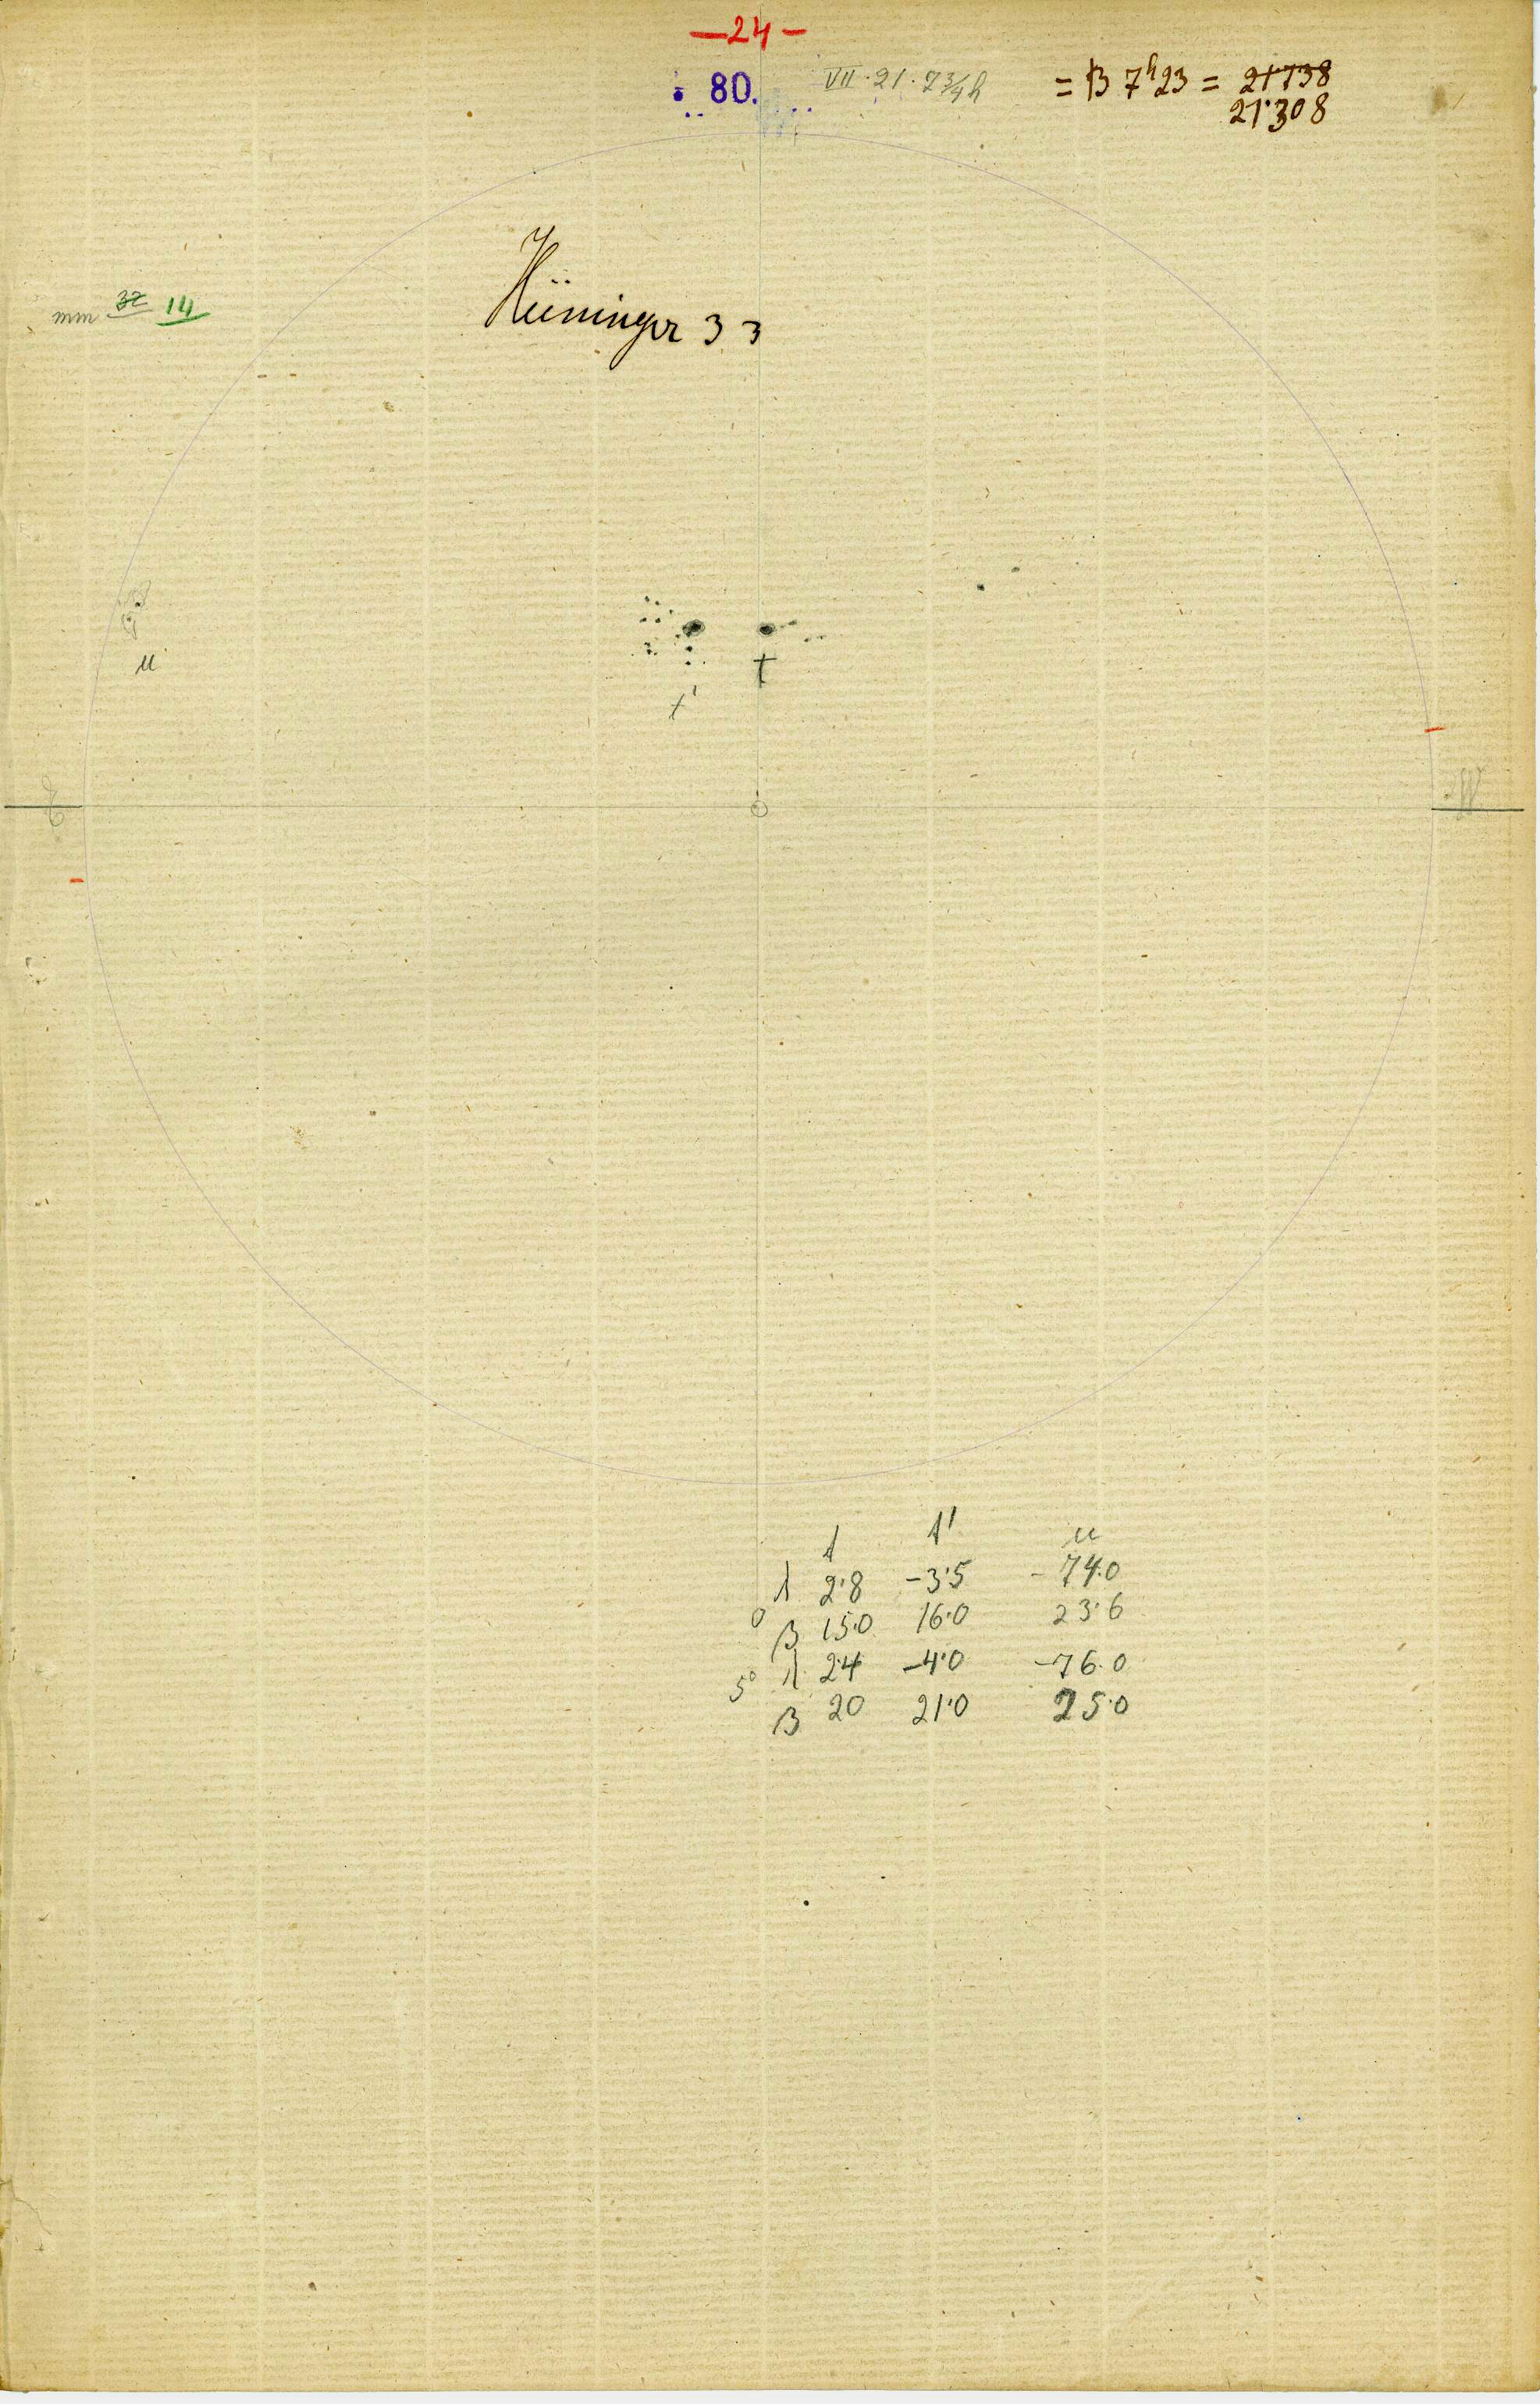 —24—
80. VII·21·7¾h = B 7ʰ23 = 21738
21·308
mm 32 14
Hüninger 33
u
t
t'
E
W
t t' u
λ 2·8 -3·5 -74.0
0 β 15.0 16.0 23.6
5° λ 2.4 -4.0 -76.0
β 20 21.0 25.0